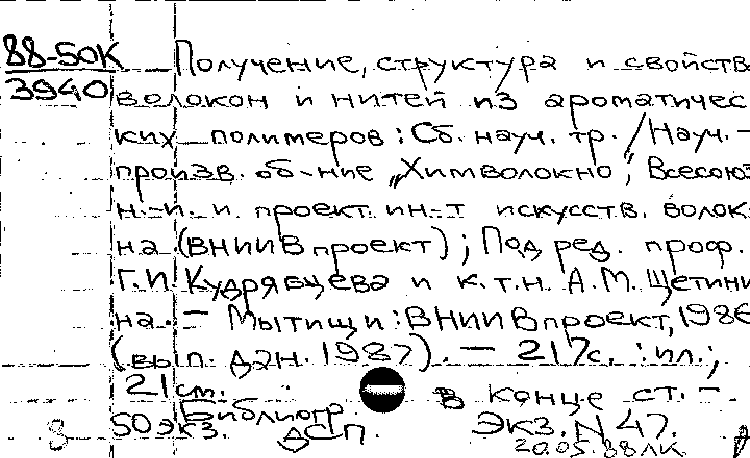 88-50К Получение, структура и свойств
3940 волокон и нитей из ароматичес
ких полимеров: Сб. науч. тр. / Науч.-
произв. об-ние „Химволокно", Всесоюз
н.-и. и проект. ин-т искусств. волок
на (ВНИИВпроект); Под ред. проф.
Г.И. Кудрявцева и к.т.н. А.М. Щетини
на. - Мытищи: ВНИИВпроект, 1986
(вып. дан. 1987). - 217с. : ил.;
21 см.
Библиогр. в конце ст. -
50 экз. ДСП. Экз. N 47.
20.05.88